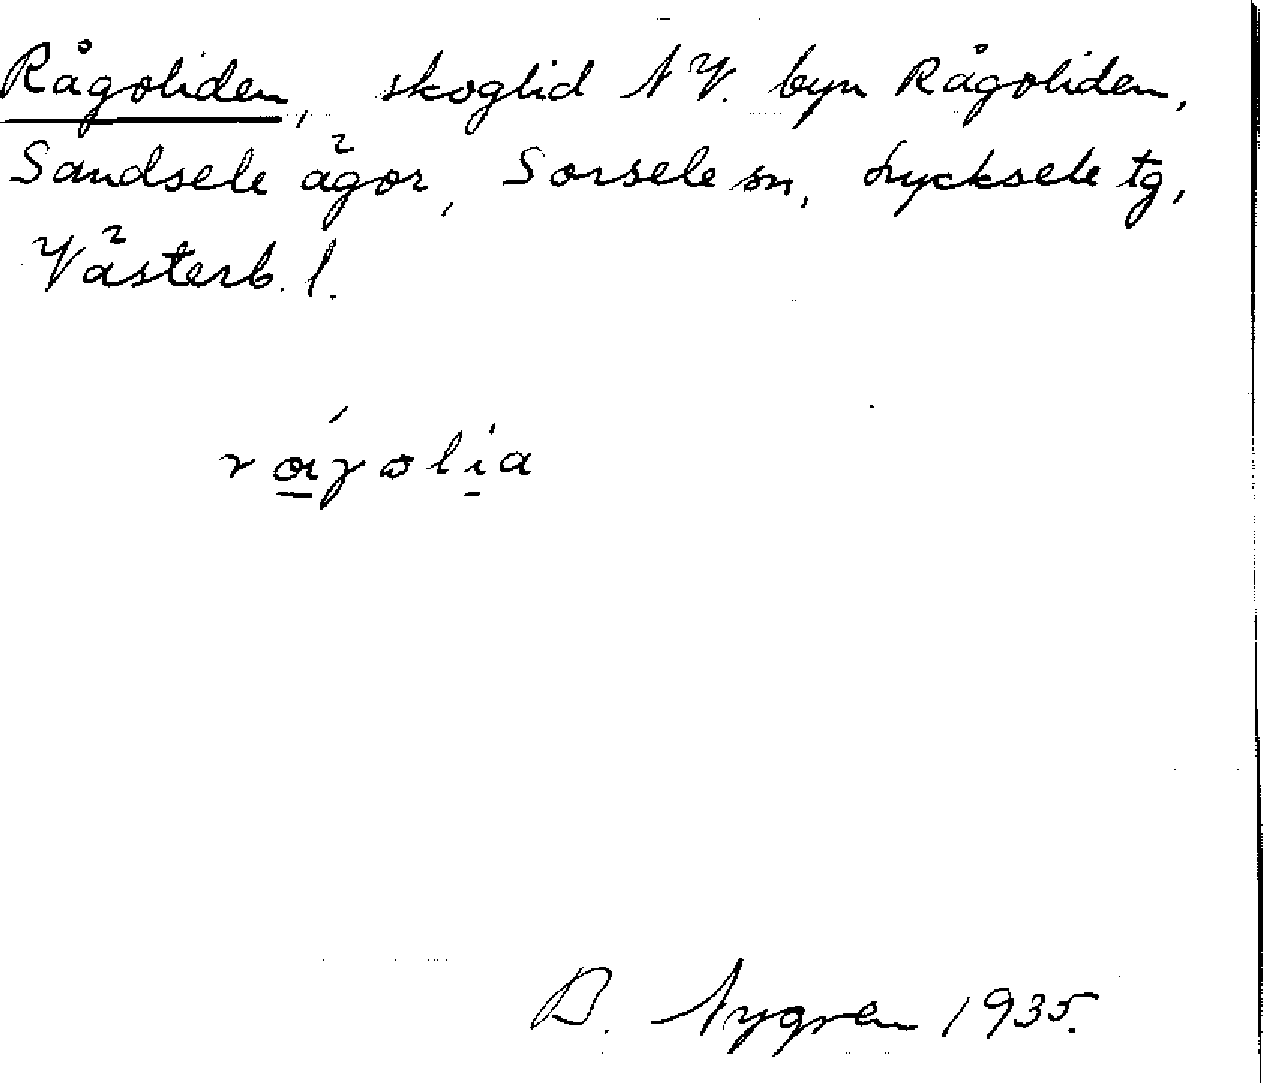 Rågoliden, skoglid N V. byn Rågoliden,
Sandsele ägor, Sorsele sn, Lycksele tg,
Västerb. l.
B. Nygren 1935.